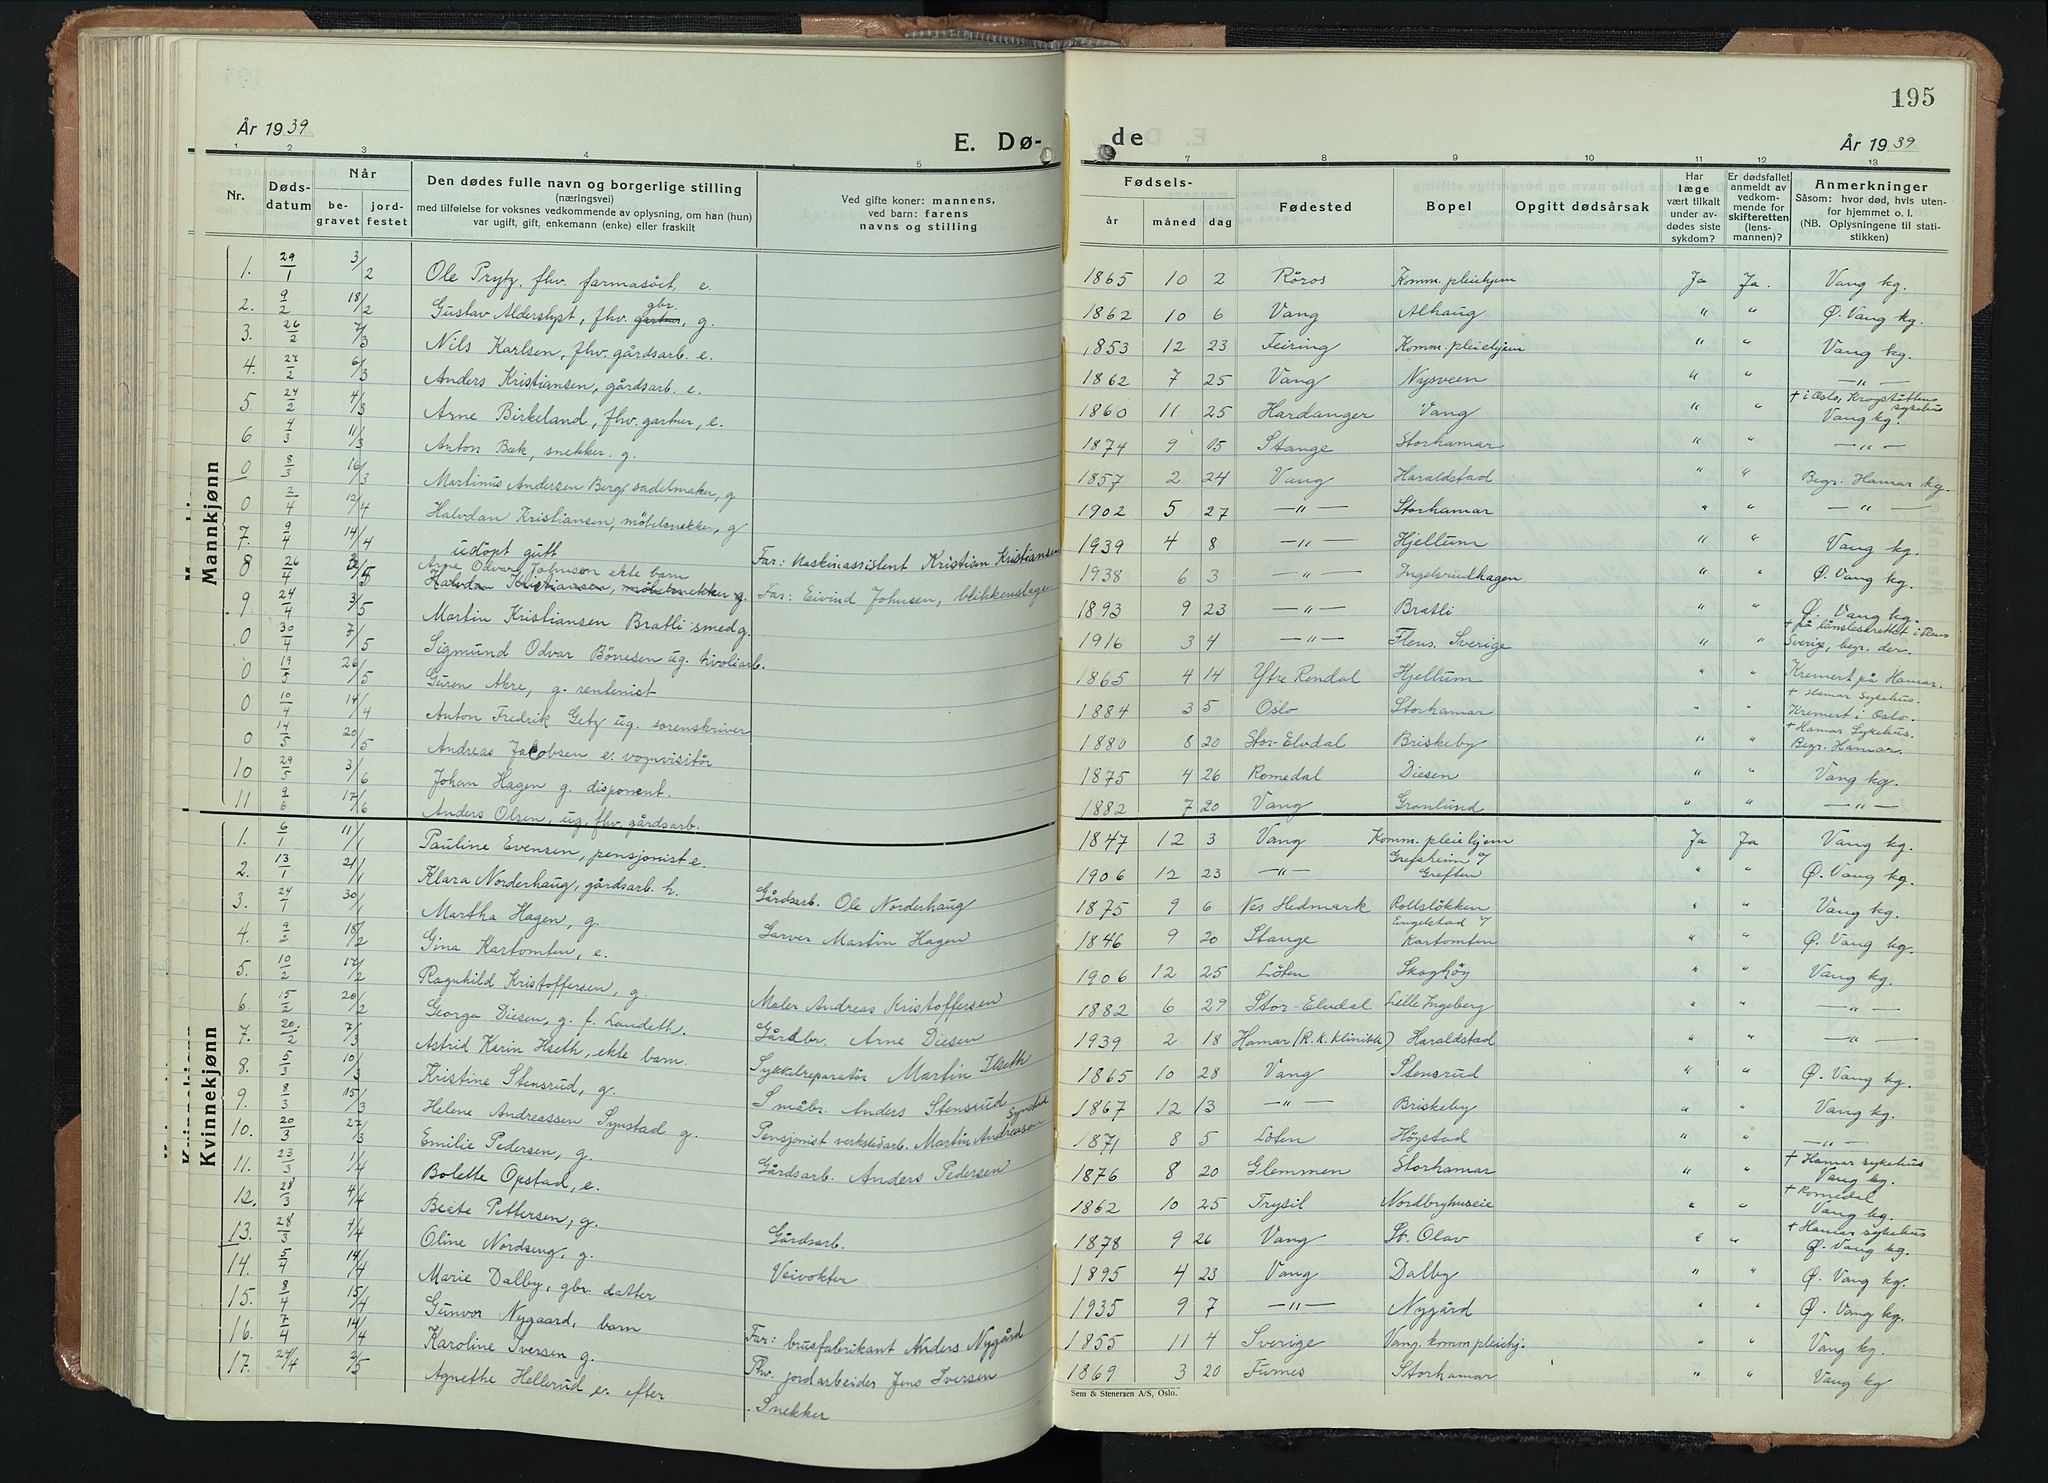 195
År 1939
E. Dø-
de
År 1939
1 2 3 4 5 7 8 9 10 11 12 13
Nr.
Døds-
datum
Når
be-
gravet
jord-
festet
Den dødes fulle navn og borgerlige stilling
(næringsvei)
med tilføielse for voksnes vedkommende av oplysning, om han (hun)
var ugift, gift, enkemann (enke) eller fraskilt
Ved gifte koner: mannens,
ved barn: farens
navns og stilling
Fødsels-
år måned dag
Fødested
Bopel
Opgitt dødsårsak
Har
læge
vært tilkalt
under av-
dødes siste
sykdom?
Er dødsfallet
anmeldt av
vedkom-
mende for
skifteretten
(lens-
mannen)?
Anmerkninger
Såsom: hvor død, hvis uten-
for hjemmet o. l.
(NB. Oplysningene til stati-
stikken)
Mannkjønn
1. 29/1 3/2 Ole Prytz, fhv. farmasøit, e. 1865 10 2 Röros Komm. pleiehjem Ja Ja. Vang kg.
2. 9/2 18/2 Gustav Alderslyst, fhv. gartner gbr., g. 1862 10 6 Vang Alhaug " " Ø. Vang kg.
3. 26/2 7/3 Nils Karlsen, fhv. gårdsarb. e. 1853 12 23 Feiring Komm. pleiehjem " " Vang kg.
4. 27/2 6/3 Anders Kristiansen, gårdsarb. e. 1862 7 25 Vang Nysveen " " —"—
5. 24/2 4/3 Arne Birkeland, fhv. gartner, e. 1860 11 25 Hardanger Vang " " † i Oslo, Krogstøttens sykehus
Vang kg.
6 4/3 11/3 Anton Bæk, snekker. g. 1874 9 15 Stange Storhamar " " —"—
0 8/3 16/3 Martinus Andersen Berg, sadelmaker, g 1857 2 24 Vang Haraldstad " " Begr. Hamar kg.
0 2/4 12/4 Halvdan Kristiansen, möbelsnekker, g 1902 5 27 —"— Storhamar " " —"—
7. 9/4 14/4 udöpt gutt Far: Maskinassistent Kristian Kristiansen 1939 4 8 —"— Hjellum " " Vang kg.
8 26/4 3/5 Arne Odvar Johnsen ekte barn Far: Eivind Johnsen, blikkenslager 1938 6 3 —"— Ingelsrudhagen " " Ø. Vang kg.
Halvdan Kristiansen, møbelsnekker g.
9 24/4 3/5 Martin Kristiansen Bratli smed g. 1893 9 23 —"— Bratli " " Ø. Vang kg.
0 30/4 7/5 Sigmund Odvar Börresen ug. tivoliarb. 1916 3 4 —"— Flens. Sverige " " † på länslasarettet i Flens
Sverige, begr. der.
0 19/5 26/5 Guren Akre, g. rentenist 1865 4 14 Ytre Rendal Hjellum " " Kremert på Hamar.
0 10/4 14/4 Anton Fredrik Getz ug. sorenskriver 1884 3 5 Oslo Storhamar " " † Hamar Sykehus.
Kremert i Oslo.
0 14/5 20/5 Andreas Jacobsen e. vognvisitör 1880 8 20 Stor-Elvdal Briskeby " " † Hamar Sykehus.
Begr. Hamar.
10 29/5 3/6 Johan Hagen g. disponent. 1875 4 26 Romedal Diesen " " Vang kg.
11 9/6 17/6 Anders Olsen, ug. fhv. gårdsarb. 1882 7 20 Vang Granlund " " —"—
Kvinnekjønn
1. 6/1 11/1 Pauline Evensen, pensjonist e. 1847 12 3 Vang Komm. pleiehjem Ja Ja Vang kg.
2. 13/1 21/1 Klara Norderhaug, gårdsarb. h. Gårdsarb. Ole Norderhaug 1906 12 23 —"— Grefsheim %
Greften " " Ø. Vang kg.
3. 24/1 30/1 Martha Hagen, g. Garver Martin Hagen 1875 9 6 Nes Hedmark Rollslökken " " Vang kg.
4. 9/2 18/2 Gina Kartomten, e. 1846 9 20 Stange Engelstad %
Kartomten " " Ø. Vang kg.
5. 10/2 17/2 Ragnhild Kristoffersen, g. Maler Andreas Kristoffersen 1906 12 25 Löten Skoghöy " " Vang kg.
6 15/2 20/2 Georga Diesen, g. f. Landeth. Gårdbr. Arne Diesen 1882 6 29 Stor-Elvdal Lille Ingeberg " " —"—
7. 20/2 7/3 Astrid Karin Ilseth, ekte barn. Sykkelreparatør Martin Ilseth 1939 2 18 Hamar (R.K. klinikk) Haraldstad " " —"—
8. 5/3 10/3 Kristine Stensrud, g. Småbr. Anders Stensrud 1865 10 28 Vang Stensrud " " Ø. Vang kg.
9. 8/3 15/3 Helene Andreassen Synstad g. Pensjonist verkstedarb. Martin Andreassen Synstad 1867 12 13 —"— Briskeby " " Vang kg.
10. 20/3 27/3 Emilie Pedersen, g. Gårdsarb. Anders Pedersen 1871 8 5 Löten Högstad " " —"—
11. 23/3 1/4 Bolette Opstad, e. 1876 8 20 Glemmen Storhamar " " † Hamar sykehus
Vang kg.
12. 28/3 4/4 Beate Pettersen, g. Gårdsarb. 1862 10 25 Trysil Nordbyhuseie " " † Romedal
Vang kg.
13. 28/3 4/4 Oline Nordseng, g. Veivokter 1878 9 26 Vang St. Olav " " † Hamar sykehus
Ø. Vang kg.
14. 5/4 14/4 Marie Dalby, gbr. datter 1895 4 23 Vang Dalby " " Ø. Vang kg.
15. 8/4 15/4 Gunvor Nygaard, barn Far: brusfabrikant Anders Nygård 1935 9 7 —"— Nygård " " Ø. Vang kg.
16. 7/4 14/4 Karoline Iversen g. Fhv. jordarbeider Jens Iversen 1855 11 4 Sverige Vang. komm pleiehj. " " Vang kg.
17. 24/4 2/5 Agnethe Hellerud e. efter Snekker 1869 3 20 Furnes Storhamar " " Vang kg
Sem & Stenersen A/S, Oslo.